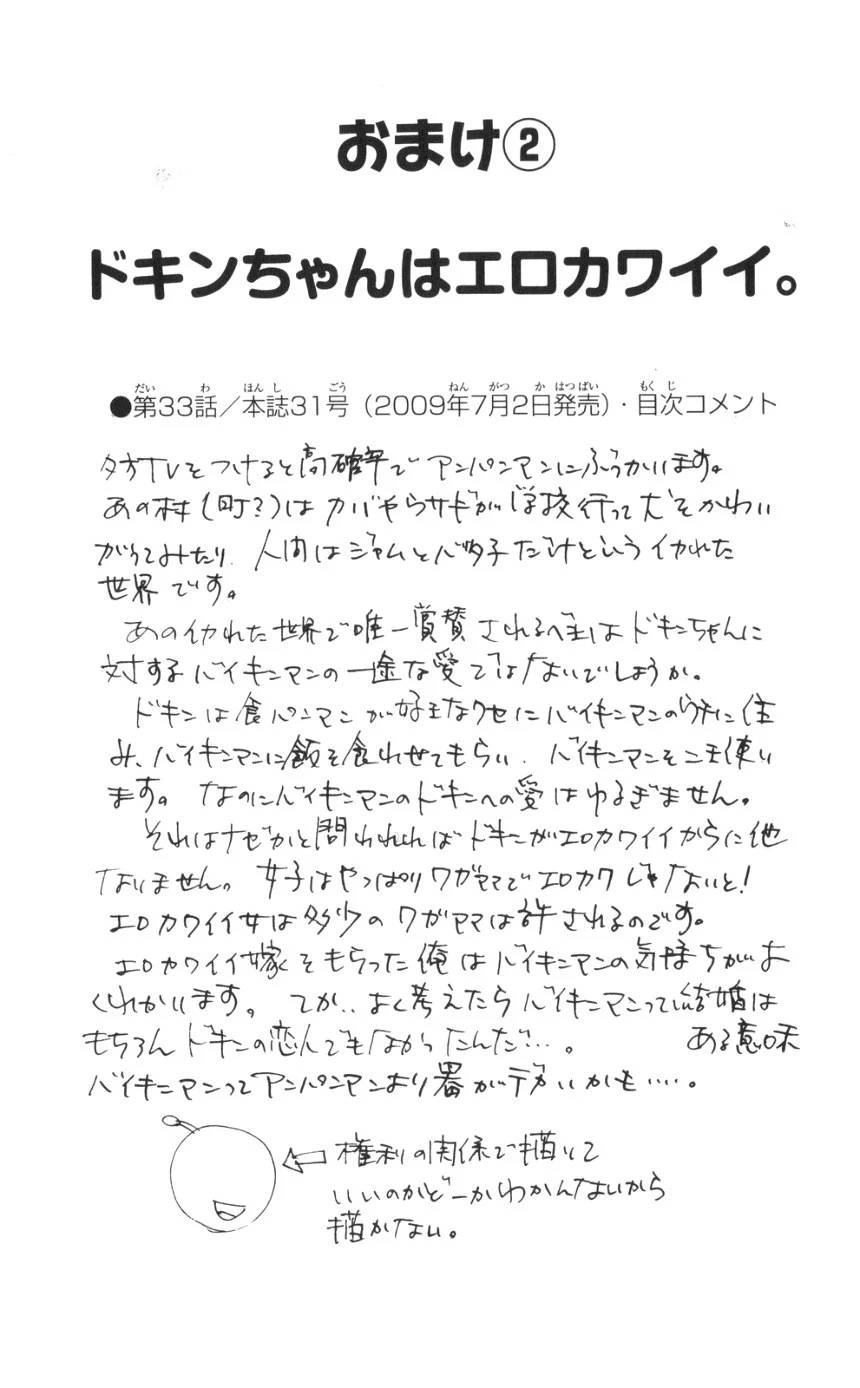 おまけ②
ドキンちゃんはエロカワイイ。
●第33話／本誌31号（2009年7月2日発売）・目次コメント
夕方TVをつけると高確率でアンパンマンにぶつかいます。
あの村（町？）はカバやらウサギが学校行って犬をかわい
がってみたり、人間はジャムとバタ子だけというイカれた
世界です。
あのイカれた世界で唯一賞賛されるべきはドキンちゃんに
対するバイキンマンの一途な愛ではないでしょうか。
ドキンは食パンマンが好きなクセにバイキンマンの家に住
み、バイキンマンに飯を食わせてもらい、バイキンマンをこき使い
ます。なのにバイキンマンのドキンへの愛はゆるぎません。
それはナゼかと問われればドキンがエロカワイイからに他
なりません。女子はやっぱりワガママでエロカワじゃないと！
エロカワイイ女は多少のワガママは許されるのです。
エロカワイイ嫁をもらった俺はバイキンマンの気持ちがよ
くわかります。てか‥よく考えたらバイキンマンって結婚は
もちろんドキンの恋人でもなかったんだ…。ある意味
バイキンマンってアンパンマンより器がデカいかも‥‥。
権利の関係で描いて
いいのかどーかわかんないから
描かない。